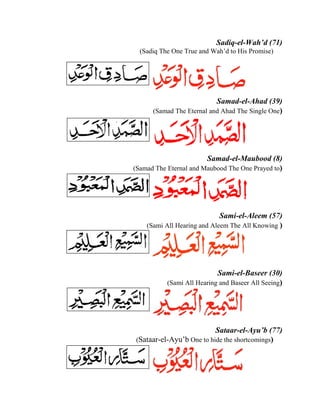 Sadiq-el-Wah'd (71)
(Sadiq The One True and Wah'd to His Promise)
صَادِقِ الْوَعْدِ صَادِقِ الْوَعْدِ
Samad-el-Ahad (39)
(Samad The Eternal and Ahad The Single One)
الصَّمَدِ الْأَحَدِ الصَّمَدِ الْأَحَدِ
Samad-el-Maubood (8)
(Samad The Eternal and Maubood The One Prayed to)
الصَّمَدِ الْمَعْبُوْدِ الصَّمَدِ الْمَعْبُوْدِ
Sami-el-Aleem (57)
(Sami All Hearing and Aleem The All Knowing )
السَّمِيْعِ الْعَلِيْمِ السَّمِيْعِ الْعَلِيْمِ
Sami-el-Baseer (30)
(Sami All Hearing and Baseer All Seeing)
السَّمِيْعِ الْبَصِيْرِ السَّمِيْعِ الْبَصِيْرِ
Sataar-el-Ayu'b (77)
(Sataar-el-Ayu'b One to hide the shortcomings)
سَتَّارِ الْعُيُوْبِ سَتَّارِ الْعُيُوْبِ